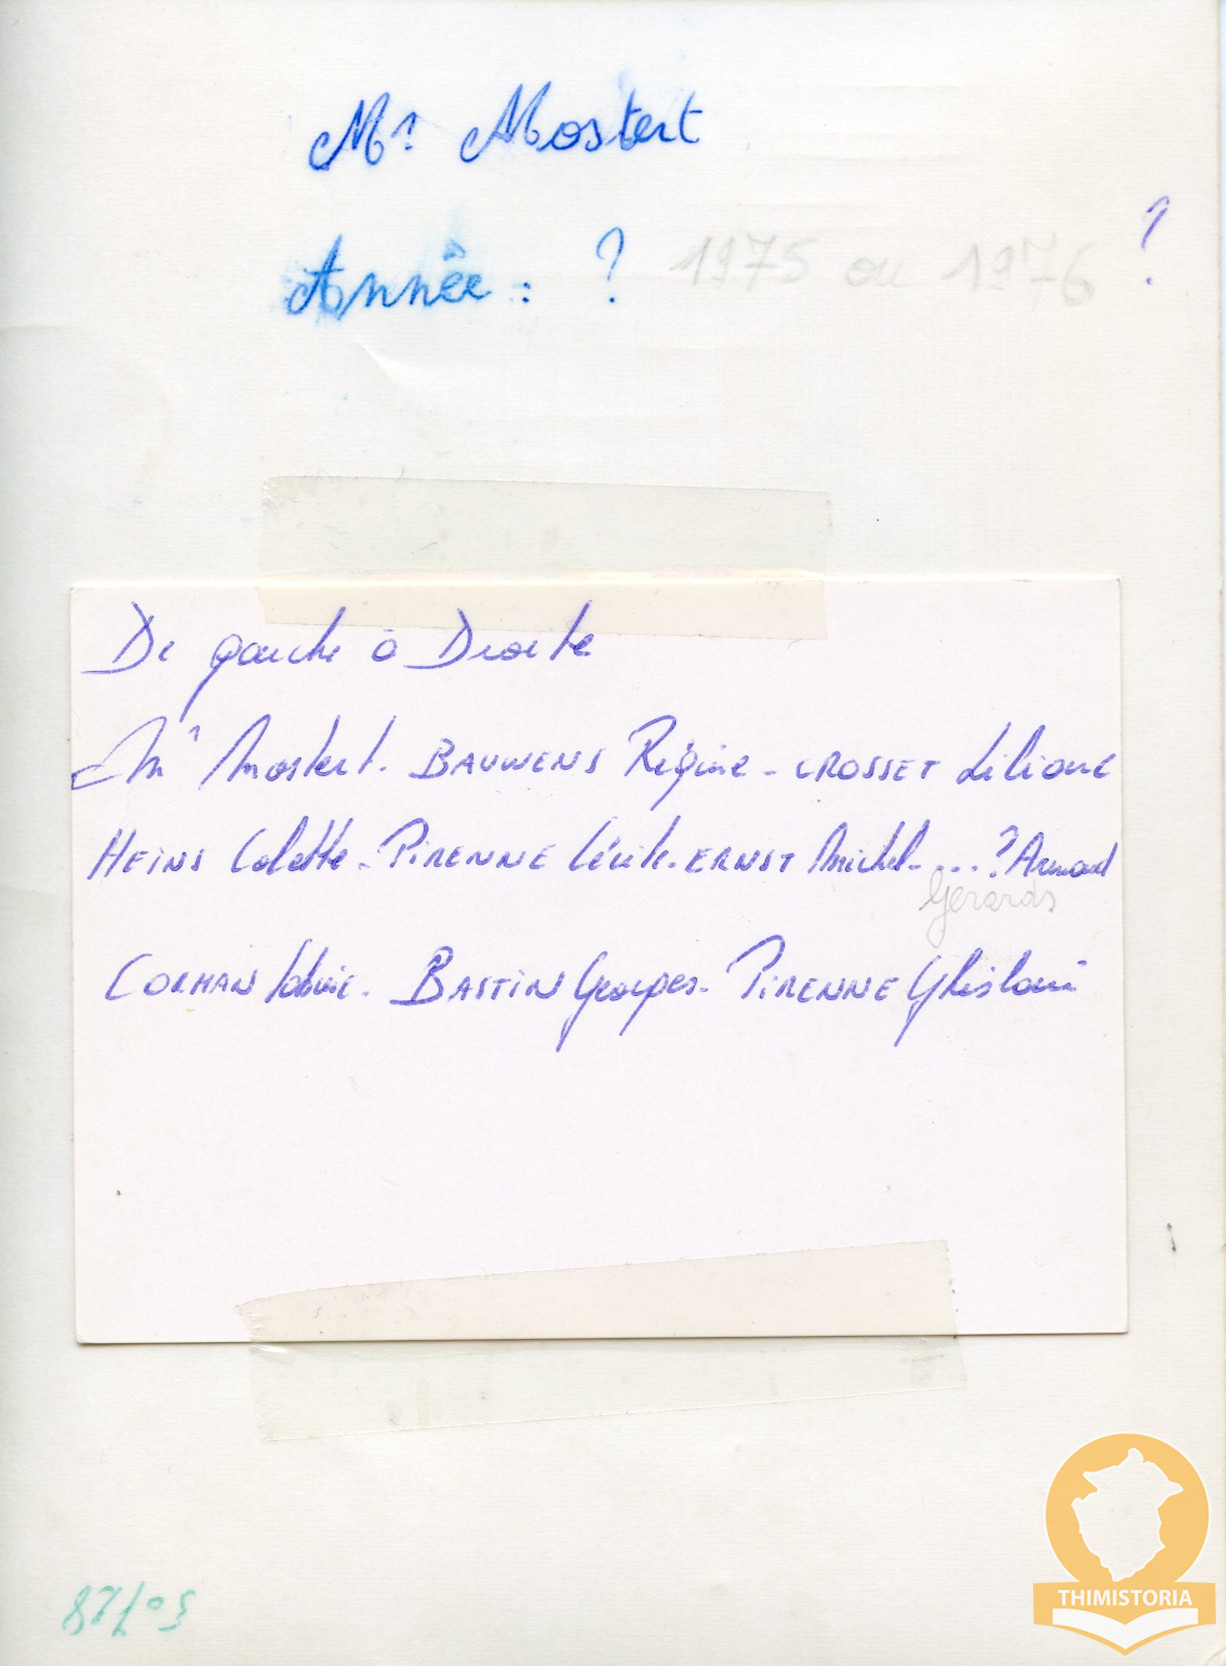 Mr Mostert
Année : ? 1975 ou 1976 ?
De gauche à Droite
Mr Mostert. BAUWENS Régine - CROSSET Liliane
HEINS Colette - PIRENNE Cécile - ERNST Michel - ...? Armand
Gérards
CORMAN - BASTIN Georges - PIRENNE Ghislain
THIMISTORIA